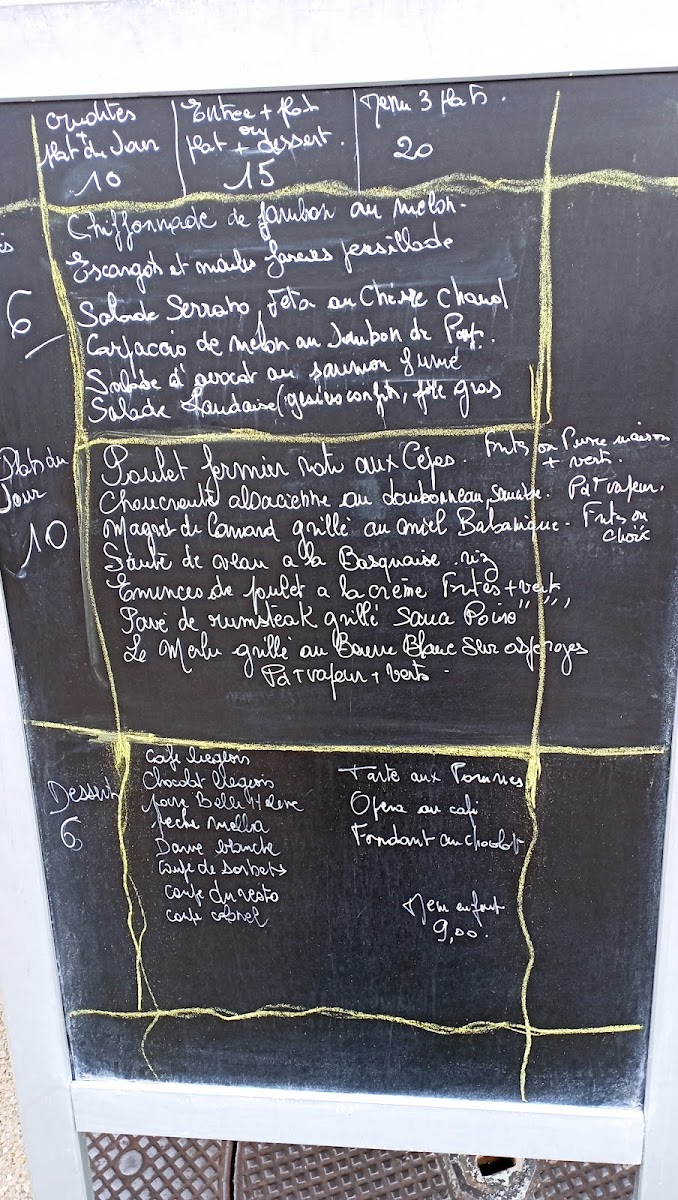 Crudités
+
plat du Jour
10
Entrée + plat
ou
plat + dessert.
15
Menu 3 plats.
20
6
Chiffonnade de jambon au melon.
Escargots et moules farcies persillade
Salade Serrano, feta au Chèvre Chaud
Carpaccio de melon au Jambon de Pays.
Salade d'avocat au saumon fumé
Salade Landaise (gesiers confits, foie gras
Plats du
Jour
10
Poulet fermier roti aux Cèpes. Frites ou Puree maison
+ verts.
Choucroute alsacienne au Jambonneau, saucisse. Pat vapeur.
Magret de Canard grillé au miel Balsamique. Frites ou
choix
Sauté de veau a la Basquaise. riz
Eminces de poulet a la crème Frites + vert
Pavé de rumsteak grillé Sauce Poivre " " "
Le Merlu grillé au Beurre Blanc Sur asperges
Pat vapeur + verts.
Dessert
6
Cafe liegeois
Chocolat liegeois
poire Belle Helene
peche melba
Dame blanche
Coupe de sorbets
coupe du resto
coupe colonel
Tarte aux Pommes
Opera au café
Fondant au chocolat
Menu enfant
9,00.